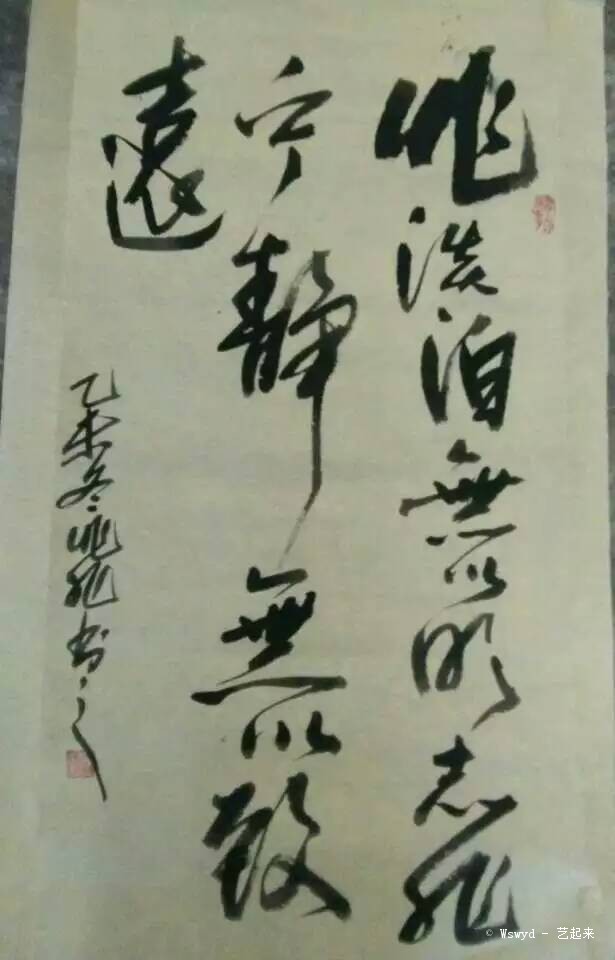 非淡泊無以明志非
宁靜無以致
遠
乙未冬非非书之
© Wswyd - 艺起来